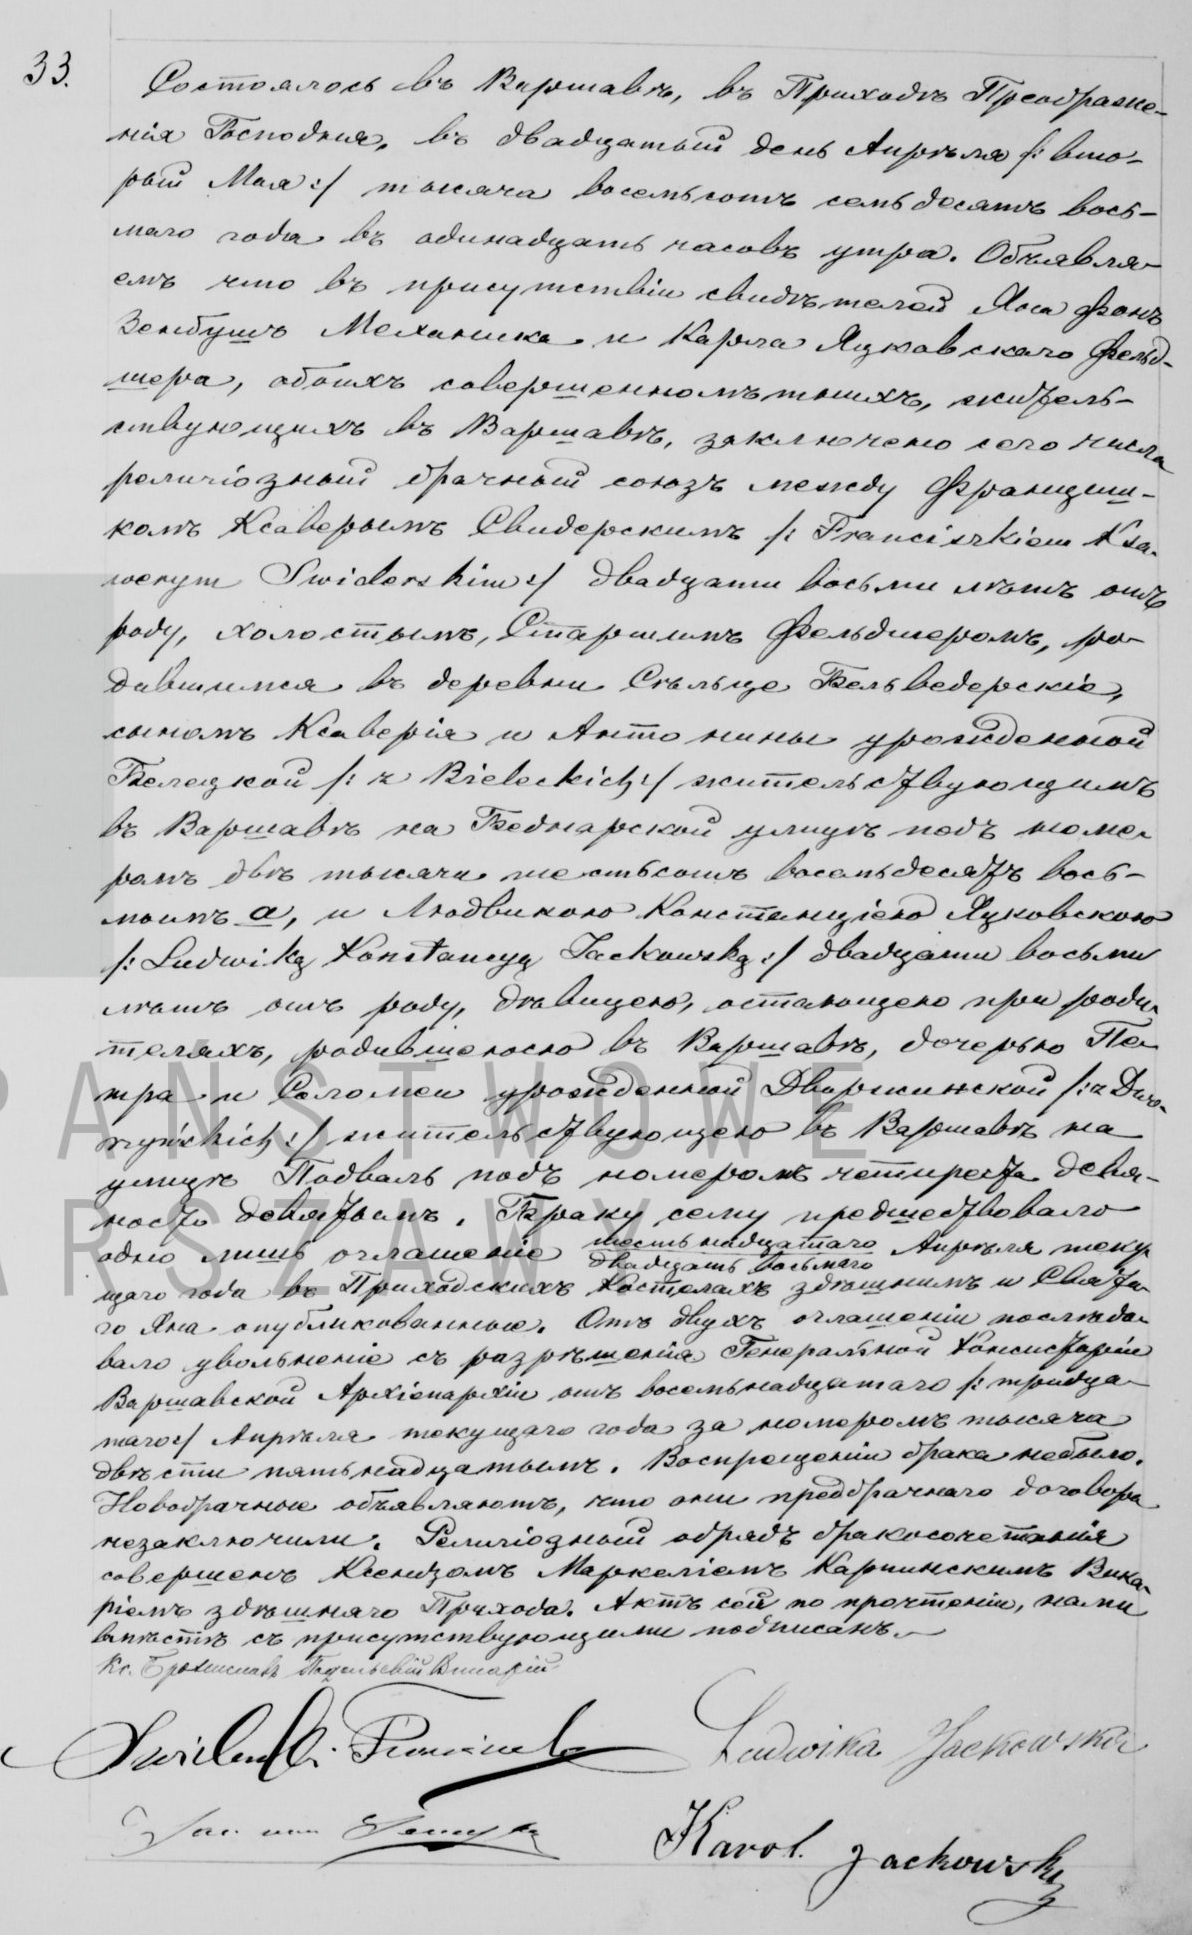 33.
Состоялось въ Варшавѣ, въ Приходѣ Преображе-
нія Господня, въ двадцатый день Апрѣля /: вто-
рый Мая :/ тысяча восемьсотъ семьдесятъ вось-
маго года въ одинадцать часовъ утра. Объявля-
емъ что въ присутствіи свидѣтелей Яна фонъ
Механика и Карла Яцковскаго Фельд-
шера, обоихъ совершеннолѣтнихъ, житель-
ствующихъ въ Варшавѣ, заключено сего числа
религіозный брачный союзъ между Франциш-
комъ Ксаверымъ Свидерскимъ /: Franciszkiem Ksa-
werym Swiderskim :/ двадцати восьми лѣтъ отъ
роду, холостымъ, Старшимъ Фельдшеромъ, ро-
дившимся въ деревни Сѣльце Бельведерскіе,
сыномъ Ксаверія и Антонины урожденной
Белецкой /: z Bieleckich :/ жительствующимъ
въ Варшавѣ на Беднарской улицѣ подъ номе-
ромъ двѣ тысячи шестьсотъ восемьдесятъ вось-
мымъ а, и Людвикою Констанціею Яцковскою
/: Ludwiką Konstancyą Jackowską :/ двадцати восьми
лѣтъ отъ роду, дѣвицею, остающею при роди-
теляхъ, родившеюсю въ Варшавѣ, дочерью Пе-
тра и Саломеи урожденной Дворжинской /: z Dwo-
rzyńskich :/ жительствующею въ Варшавѣ на
улицѣ Подваль подъ номеромъ четыреста девя-
носто девятымъ. Браку сему предшествовало
одно лишь оглашеніе шестьнадцатаго Апрѣля теку-
двадцать восьмаго
щаго года въ Приходскихъ Костелахъ здѣшнимъ и Свята-
го Яна опубликованные. Отъ двухъ оглашеніи послѣдо-
вало увольненіе съ разрѣшенія Генеральной Консисторіи
Варшавской Архіепархіи отъ восемьнадцатаго /: тридца-
таго :/ Апрѣля текущаго года за номеромъ тысяча
двѣсти пятьнадцатымъ. Воспрещеніи брака небыло.
Новобрачные объявляютъ, что они предбрачнаго договора
незаключили. Религіозный обрядъ бракосочетанія
совершенъ Ксендзомъ Маркеліемъ Карпинскимъ Вика-
ріемъ здѣшняго Прихода. Актъ сей по прочтеніи, нами
вмѣстѣ съ присутствующими подписанъ.
Кс. Викарій
Ludwika Jackowska
Jan von
Karol Jackowski